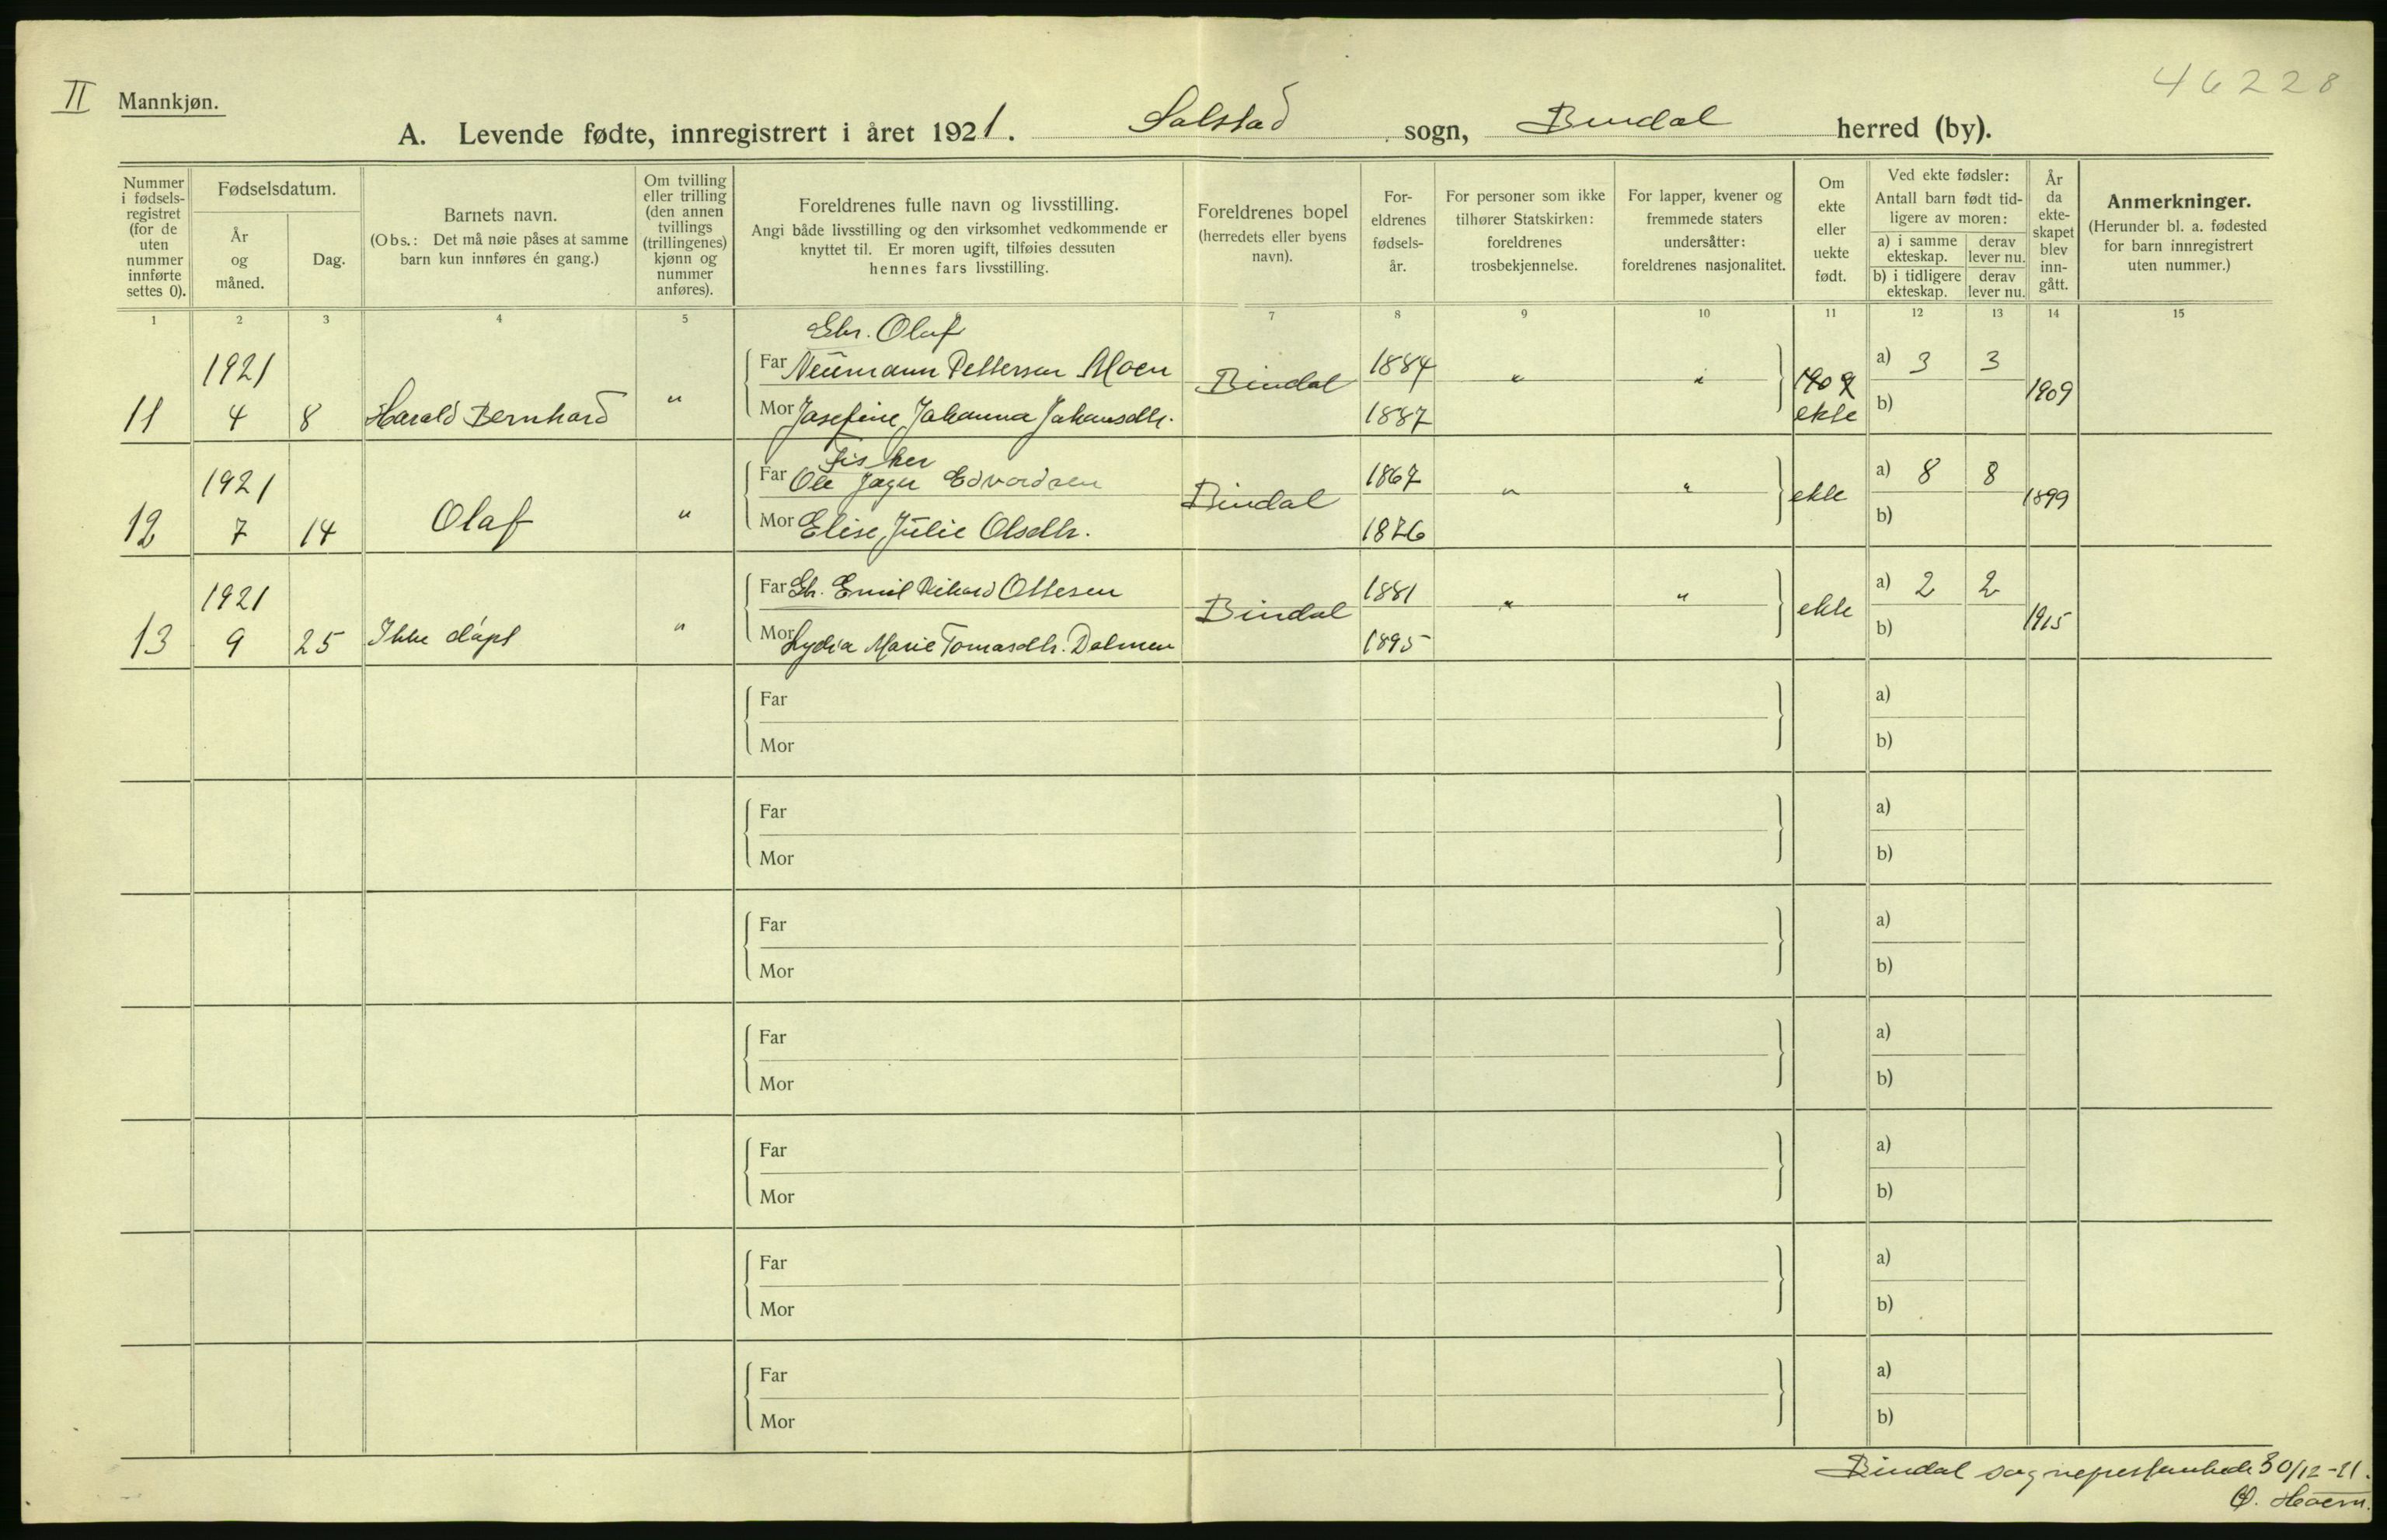 II Mannkjøn.
46228
A. Levende fødte, innregistrert i året 1921. Salstad sogn, Bindal herred (by).
Nummer i fødselsregistret (for de uten nummer innførte settes 0).
Fødselsdatum.
År og måned.
Dag.
Barnets navn.
(Obs.: Det må nøie påses at samme barn kun innføres én gang.)
Om tvilling eller trilling (den annen tvillings (trillingenes) kjønn og nummer anføres).
Foreldrenes fulle navn og livsstilling.
Angi både livsstilling og den virksomhet vedkommende er knyttet til. Er moren ugift, tilføies dessuten hennes fars livsstilling.
Foreldrenes bopel (herredets eller byens navn).
For-eldrenes fødsels-år.
For personer som ikke tilhører Statskirken: foreldrenes trosbekjennelse.
For lapper, kvener og fremmede staters undersåtter: foreldrenes nasjonalitet.
Om ekte eller uekte født.
Ved ekte fødsler: Antall barn født tidligere av moren:
a) i samme ekteskap.
derav lever nu.
b) i tidligere ekteskap.
derav lever nu.
År da ekte-skapet blev inn-gått.
Anmerkninger.
(Herunder bl. a. fødested for barn innregistrert uten nummer.)
1 2 3 4 5 7 8 9 10 11 12 13 14 15
Gbr. Olaf
1921 Far Neumann Pettersen Moen Bindal 1884 " " 1909 a) 3 3 1909
11 4 8 Harald Bernhard " Mor Josefine Johanna Johansdtr. 1887 ekte b)
Fisker
1921 Far Ole Jager Edvardsen Bindal 1867 " " ekte a) 8 8 1899
12 7 14 Olaf " Mor Elise Julie Olsdtr. 1876 b)
1921 Far Gbr. Emil Rikard Ottesen Bindal 1881 " " ekte a) 2 2 1915
13 9 25 Ikke døpt " Mor Lydia Marie Tomasdtr. Dalmen 1895 b)
Far a)
Mor b)
Far a)
Mor b)
Far a)
Mor b)
Far a)
Mor b)
Far a)
Mor b)
Far a)
Mor b)
Far a)
Mor b)
Bindal sogneprestembede 30/12-21.